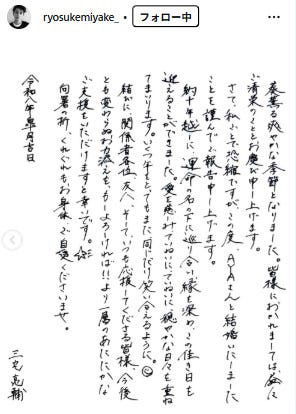 ryosukemiyake_ • フォロー中
葉薫る爽やかな季節となりました。皆様におかれましては、益々
ご清栄のこととお慶び申し上げます。
さて、私ごとで恐縮ですが、この度、AIAさんと結婚いたしました
ことを謹んでご報告申し上げます。
約十年越しに、運命の名の下に巡り合い縁を深め、この佳き日を
迎えることができました。愛を慈しみていねいにていねいに穏やかな日々を重ね
てまいります。いくつ年をとってもまた同じだけ笑い合えるように
結びに関係者各位、友人、そして、いつも応援してくださる皆様、今後
とも変わらぬお力添えを、もーよろければ!!より一層のあたたかな
ご支援をいただけますと幸いです。
向暑の折、くれぐれもお身体ご自愛くださいませ。
令和八年皐月吉日
三宅亮輔